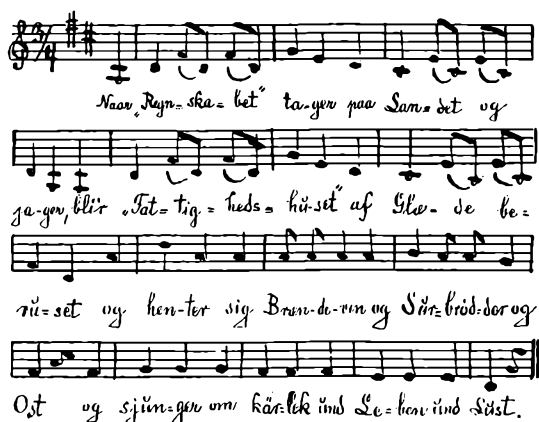 Naar „Regn=ska=bet" ta=ger paa Lan=det og
ja=ger, blir „Fat=tig=heds=hu-set" af Glæ=de be=
ru=set og hen=ter sig Bræn=de=vin og Sur=bröd=der og
Ost og sjun=ger om kär=lek und Le=ben und Lüst.